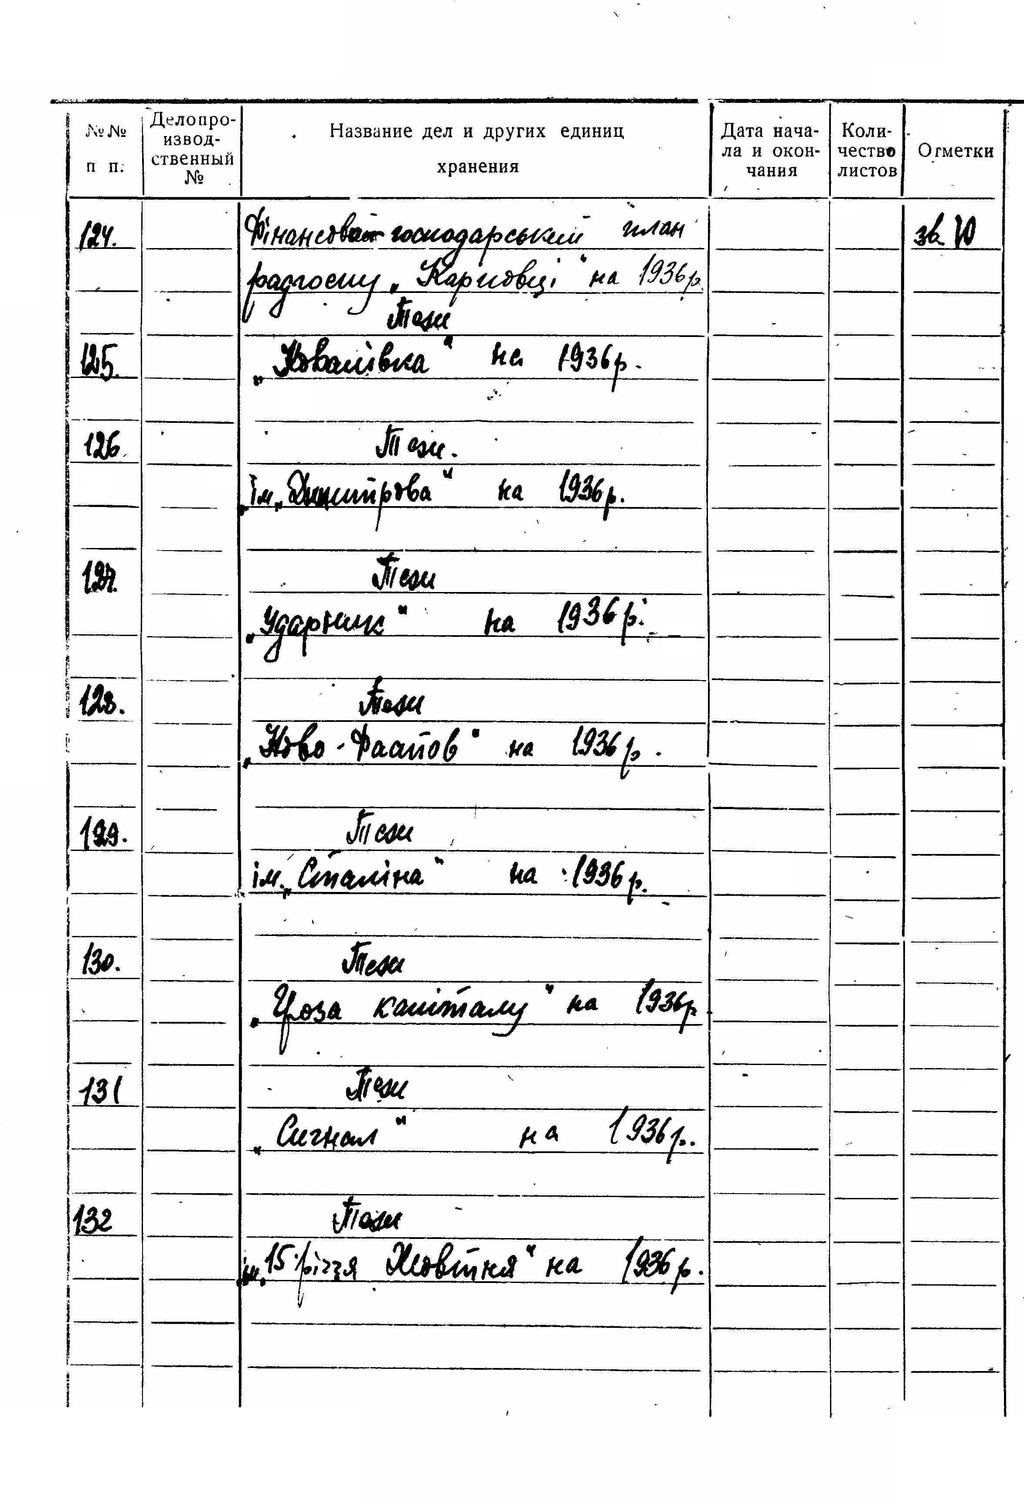 №№ п п.
Делопро-
извод-
ственный
№
Название дел и других единиц
хранения
Дата нача-
ла и окон-
чания
Коли-
чество
листов
Отметки
124. Фінансово господарський план
радгоспу „Карповці" на 1936р.
125. Тези
„Ковалівка" на 1936р.
126. Тези.
ім. „Димитрова" на 1936р.
127. Тези
„Ударник" на 1936р.
128. Тези
„Ново- на 1936р.
129. Тези
ім. „Сталіна" на 1936р.
130. Тези
„Гроза капіталу" на 1936р
131 Тези
„Сигнал" на 1936р.
132 Тези
ім. 15-річчя Жовтня" на 1936р.